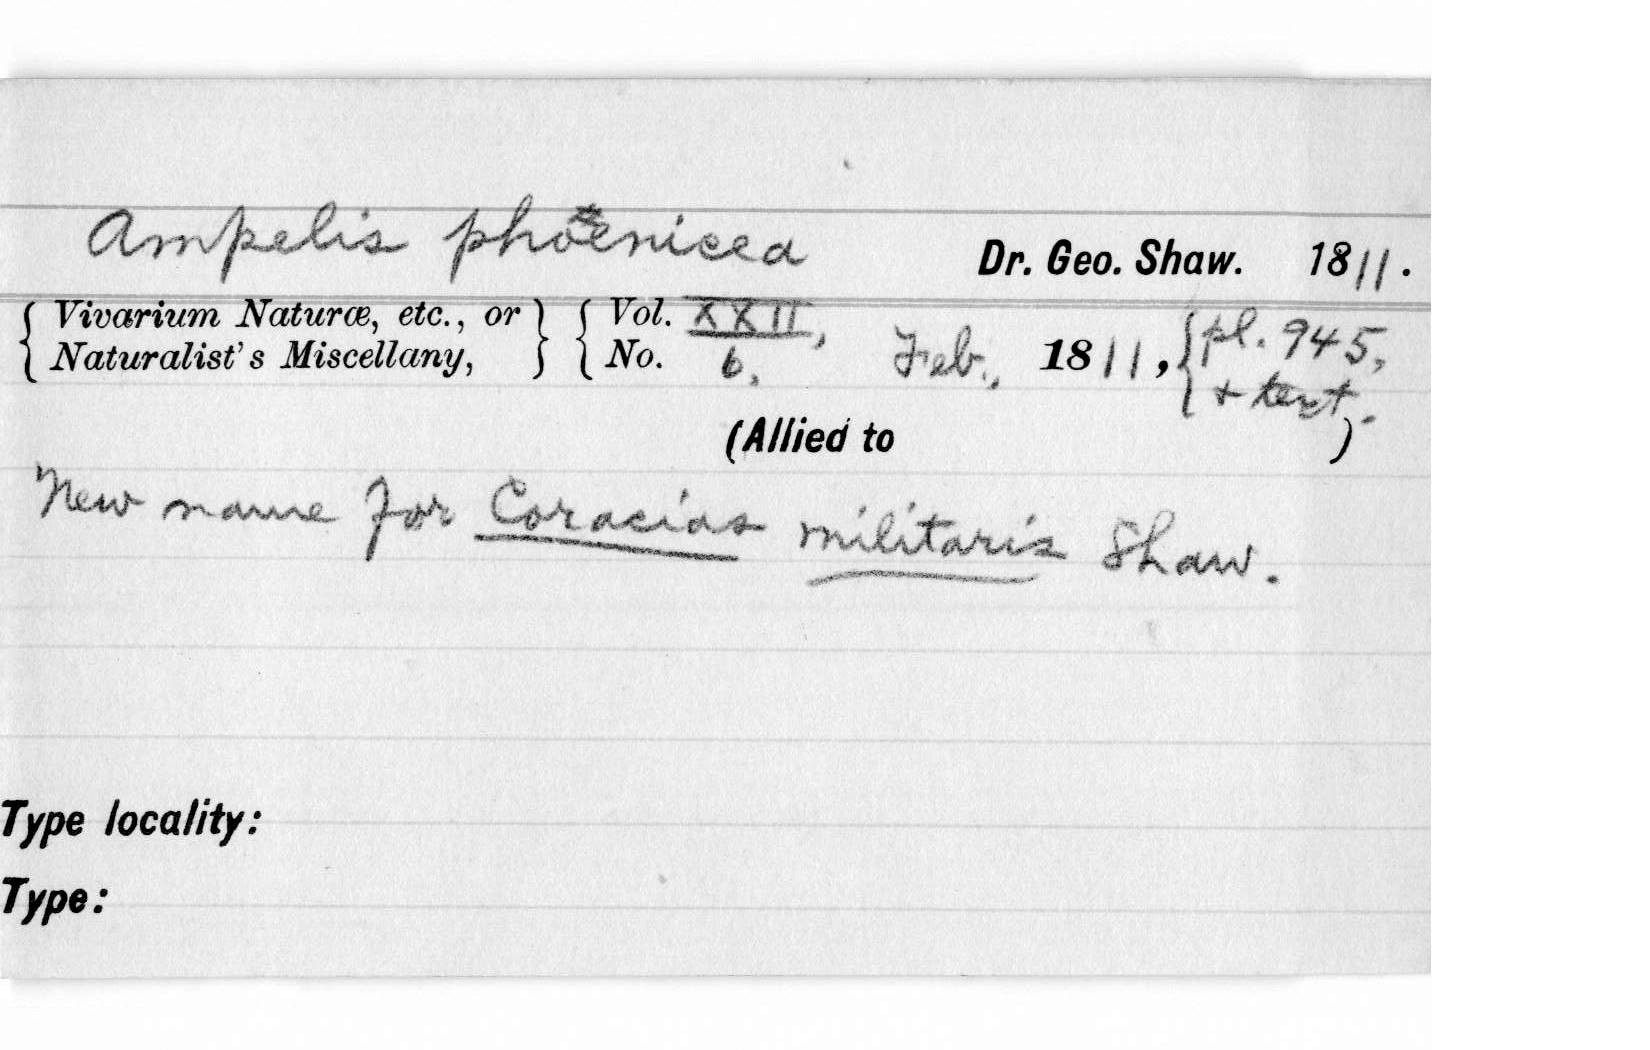 Ampelis phoenicea Dr. Geo. Shaw. 1811.
{ Vivarium Naturæ, etc., or } { Vol. XXII, { pl. 945,
{ Naturalist's Miscellany, } { No. 6, Feb., 1811, { + text.
(Allied to )
New name for Coracias militaris Shaw.
Type locality:
Type: